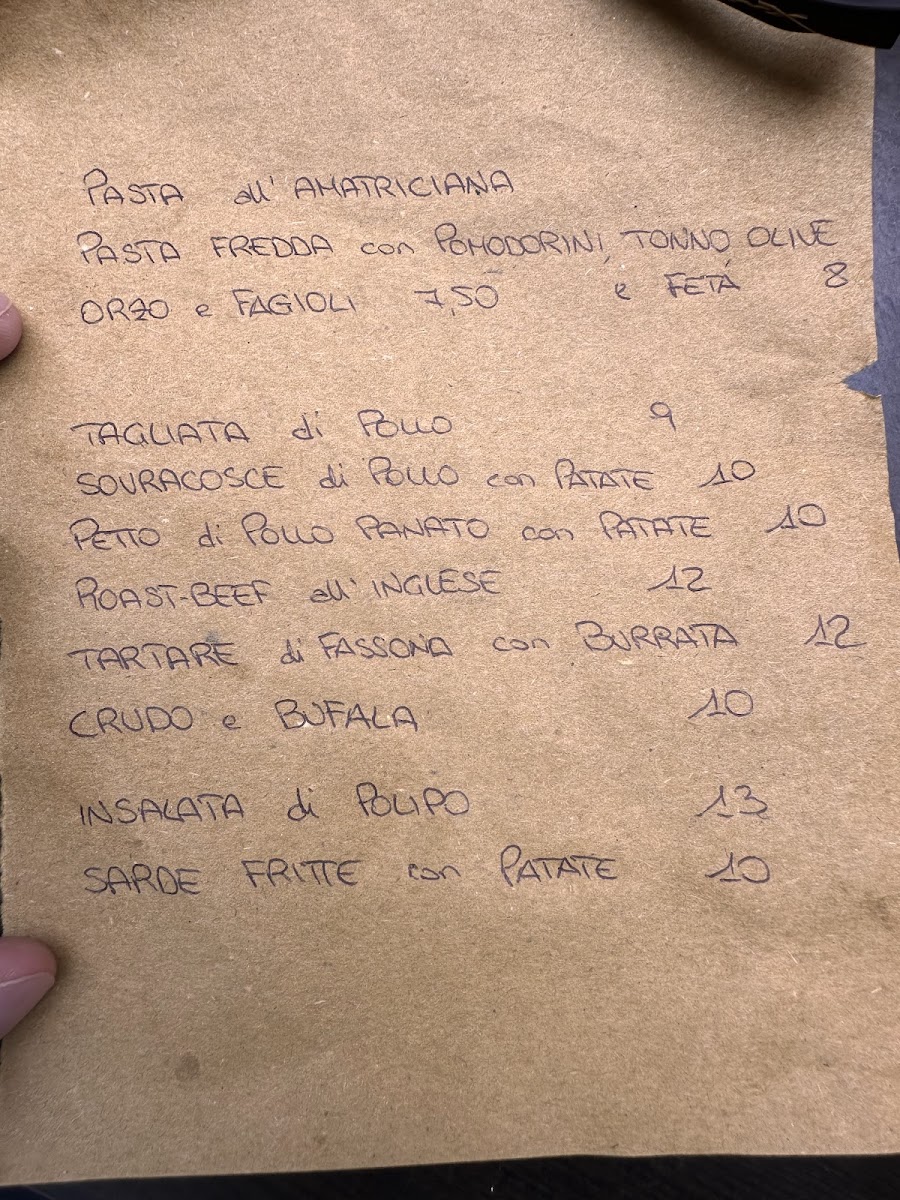 PASTA all' AMATRICIANA
PASTA FREDDA con POMODORINI, TONNO, OLIVE
e FETA 8
ORZO e FAGIOLI 7,50
TAGLIATA di POLLO 9
SOVRACOSCE di POLLO con PATATE 10
PETTO di POLLO PANATO con PATATE 10
ROAST-BEEF all'INGLESE 12
TARTARE di FASSONA con BURRATA 12
CRUDO e BUFALA 10
INSALATA di POLIPO 13
SARDE FRITTE con PATATE 10